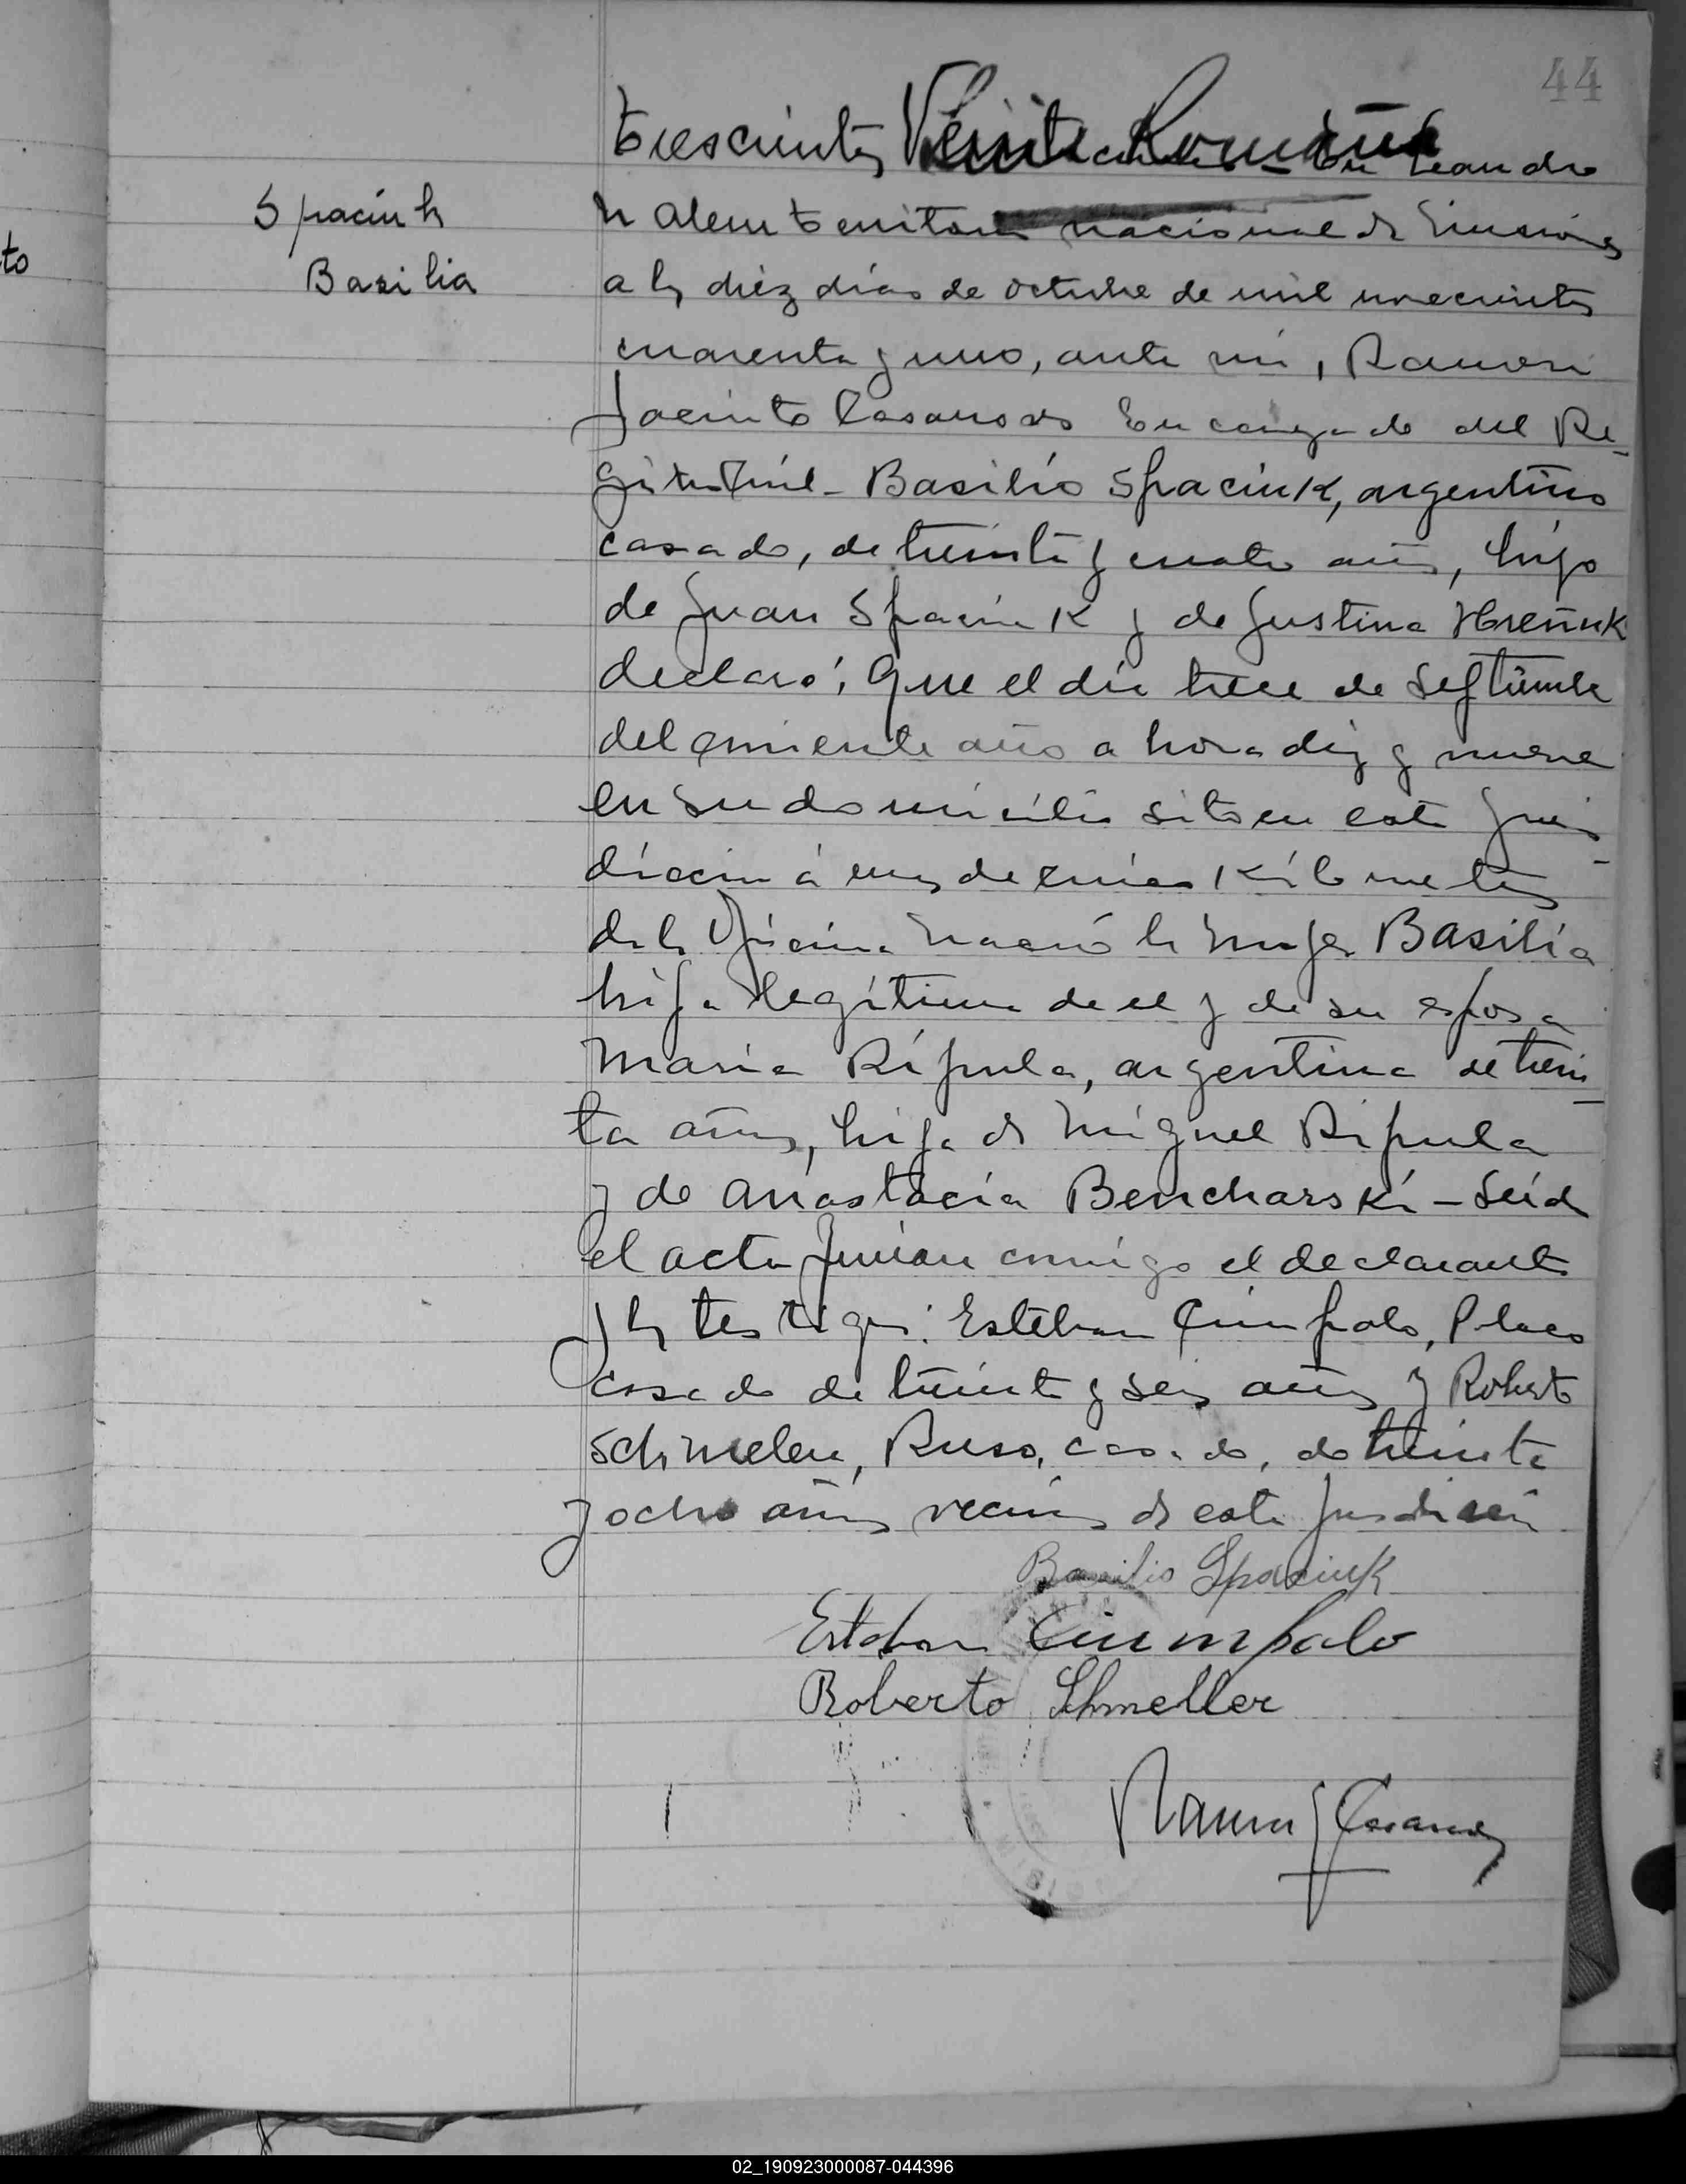 44
Trescientos Veinte
En Leandro
N Alem Territorio nacional de Misiones
a los diez dias de octubre de mil novecientos
cuarenta y uno, ante mi, Ramon
Jacinto Casanova Encargado del Re-
gistro Civil - Basilio Spaciuk, argentino
casado, de treinta y cuatro años, hijo
de Juan Spaciuk y de Justina Hreñuk
declaró: Que el día trece de Septiembre
del corriente año a hora diez y nueve
en su domicilio sito en esta juris-
dicción á unos kilometros
de la Oficina nació la mujer Basilia
hija legítima de el y de su esposa
Maria Ripula, argentina de trein-
ta años, hija de Miguel Ripula
y de Anastacia Bencharski - Leida
el acta firman conmigo el declarante
y los testigos: Esteban Ciumpalo, Polaco
casado de treinta y seis años y Roberto
Schmeler, Ruso, casado, de treinta
y ocho años vecinos de esta jurisdicción
Basilio Spaciuk
Esteban Ciumpalo
Roberto Schmeller
Ramon J Casanova
Spaciuk
Basilia
to
02_190923000087-044396